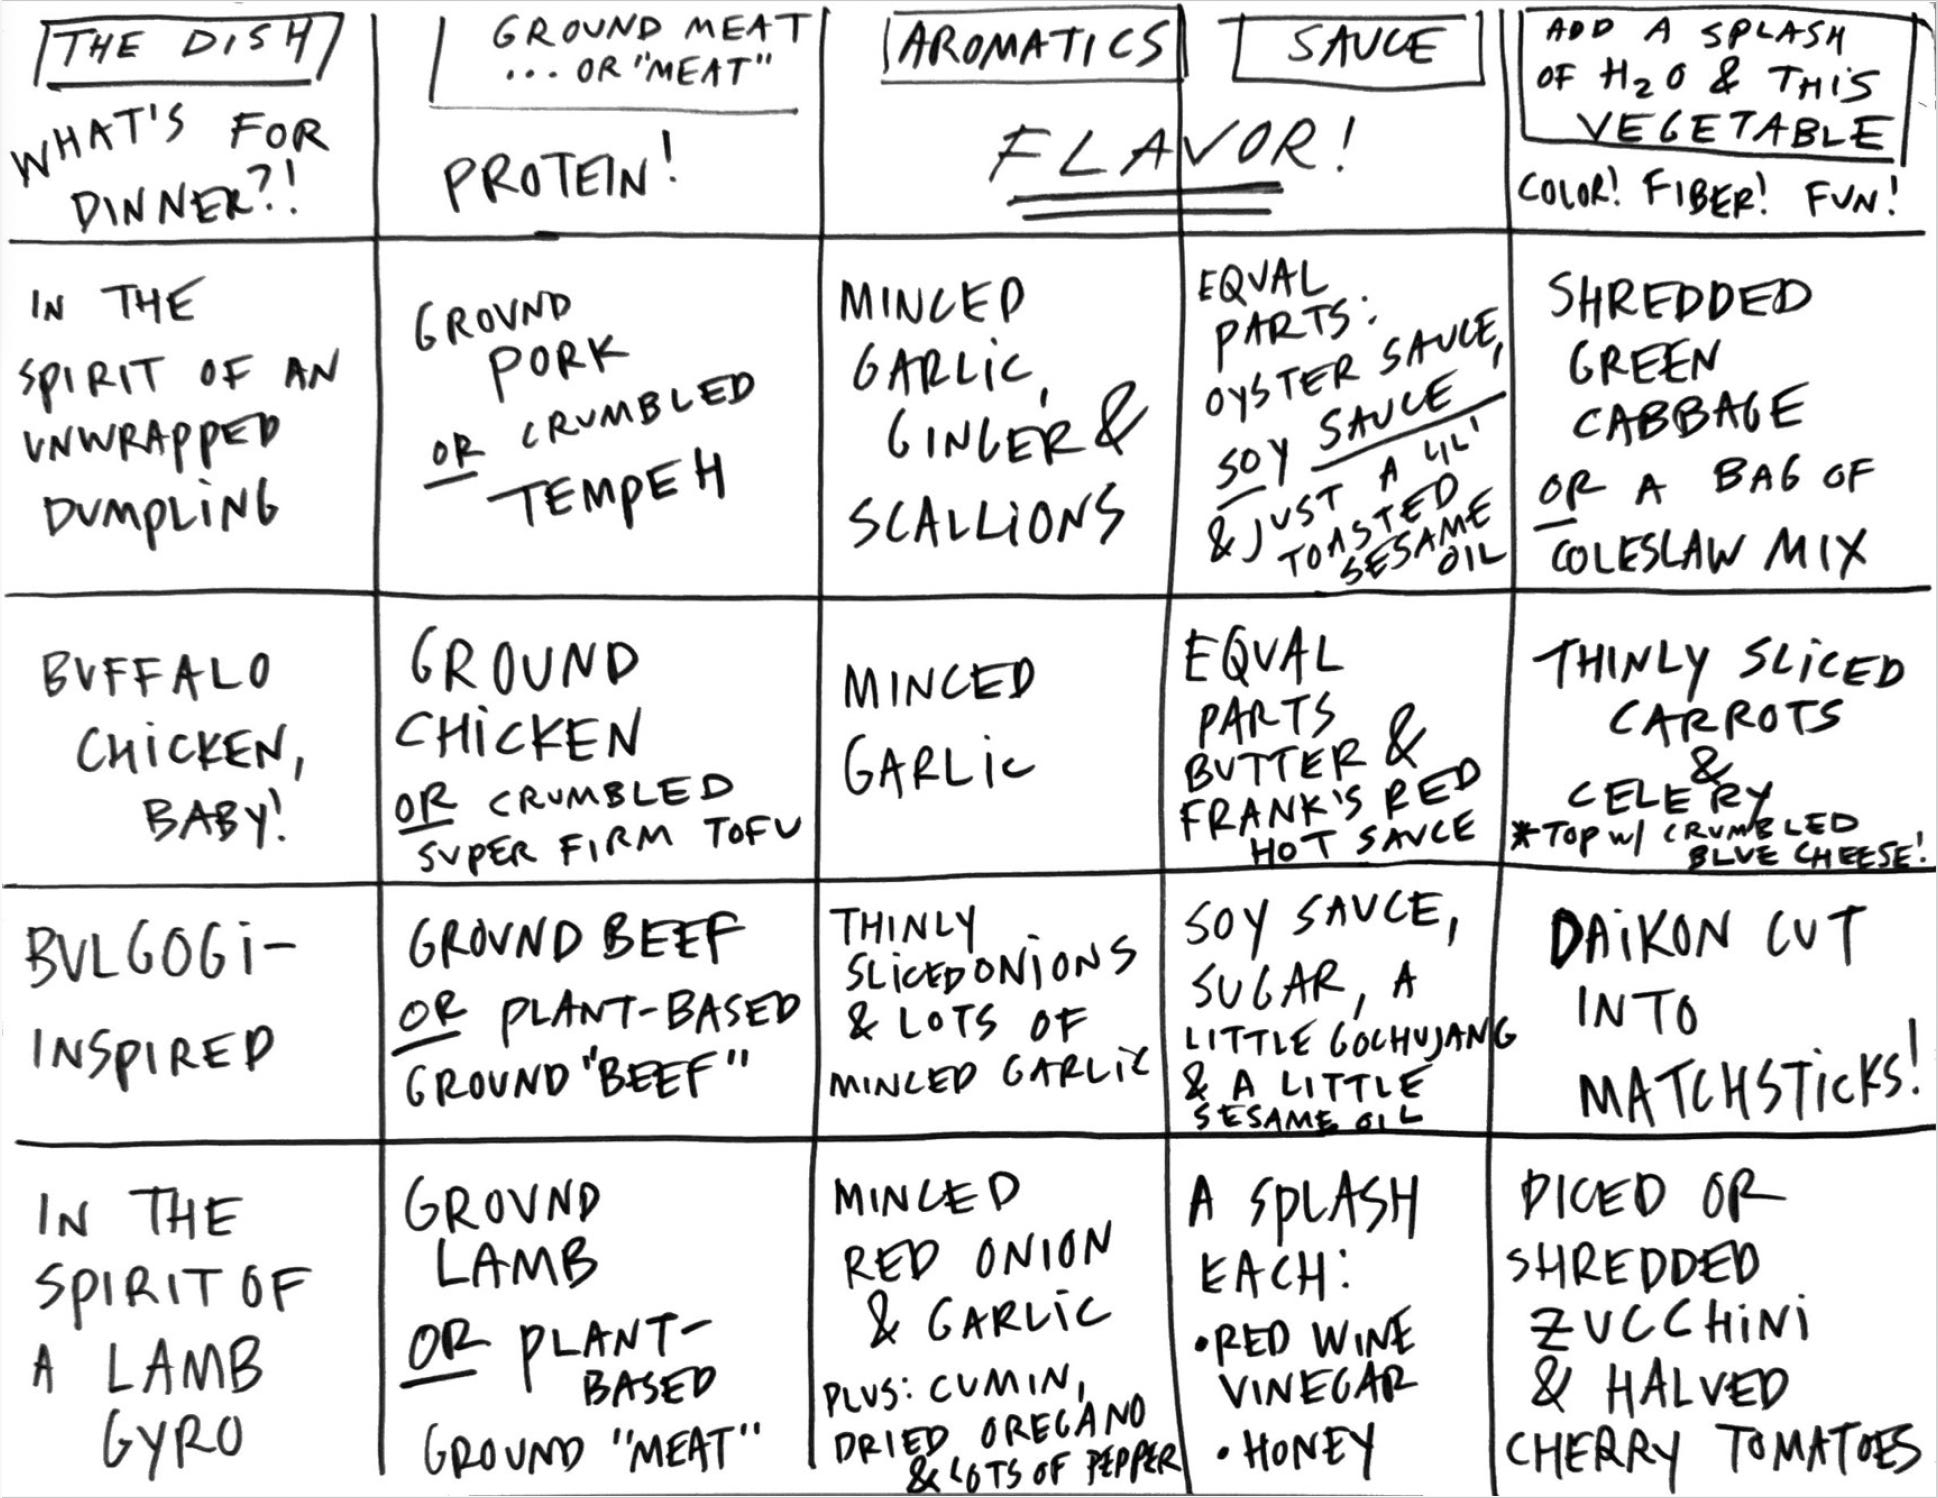 THE DISH
WHAT'S FOR
DINNER?!
GROUND MEAT
... OR "MEAT"
PROTEIN!
AROMATICS
SAUCE
FLAVOR!
ADD A SPLASH
OF H2O & THIS
VEGETABLE
COLOR! FIBER! FUN!
IN THE
SPIRIT OF AN
UNWRAPPED
DUMPLING
GROUND
PORK
OR CRUMBLED
TEMPEH
MINCED
GARLIC,
GINGER &
SCALLIONS
EQUAL
PARTS:
OYSTER SAUCE,
SOY SAUCE
& JUST A LIL'
TOASTED
SESAME
OIL
SHREDDED
GREEN
CABBAGE
OR A BAG OF
COLESLAW MIX
BUFFALO
CHICKEN,
BABY!
GROUND
CHICKEN
OR CRUMBLED
SUPER FIRM TOFU
MINCED
GARLIC
EQUAL
PARTS
BUTTER &
FRANK'S RED
HOT SAUCE
THINLY SLICED
CARROTS
&
CELERY
*TOP W/ CRUMBLED
BLUE CHEESE!
BULGOGI-
INSPIRED
GROUND BEEF
OR PLANT-BASED
GROUND "BEEF"
THINLY
SLICED ONIONS
& LOTS OF
MINCED GARLIC
SOY SAUCE,
SUGAR, A
LITTLE GOCHUJANG
& A LITTLE
SESAME OIL
DAIKON CUT
INTO
MATCHSTICKS!
IN THE
SPIRIT OF
A LAMB
GYRO
GROUND
LAMB
OR PLANT-
BASED
GROUND "MEAT"
MINCED
RED ONION
& GARLIC
PLUS: CUMIN,
DRIED OREGANO
& LOTS OF PEPPER
A SPLASH
EACH:
•RED WINE
VINEGAR
•HONEY
DICED OR
SHREDDED
ZUCCHINI
& HALVED
CHERRY TOMATOES